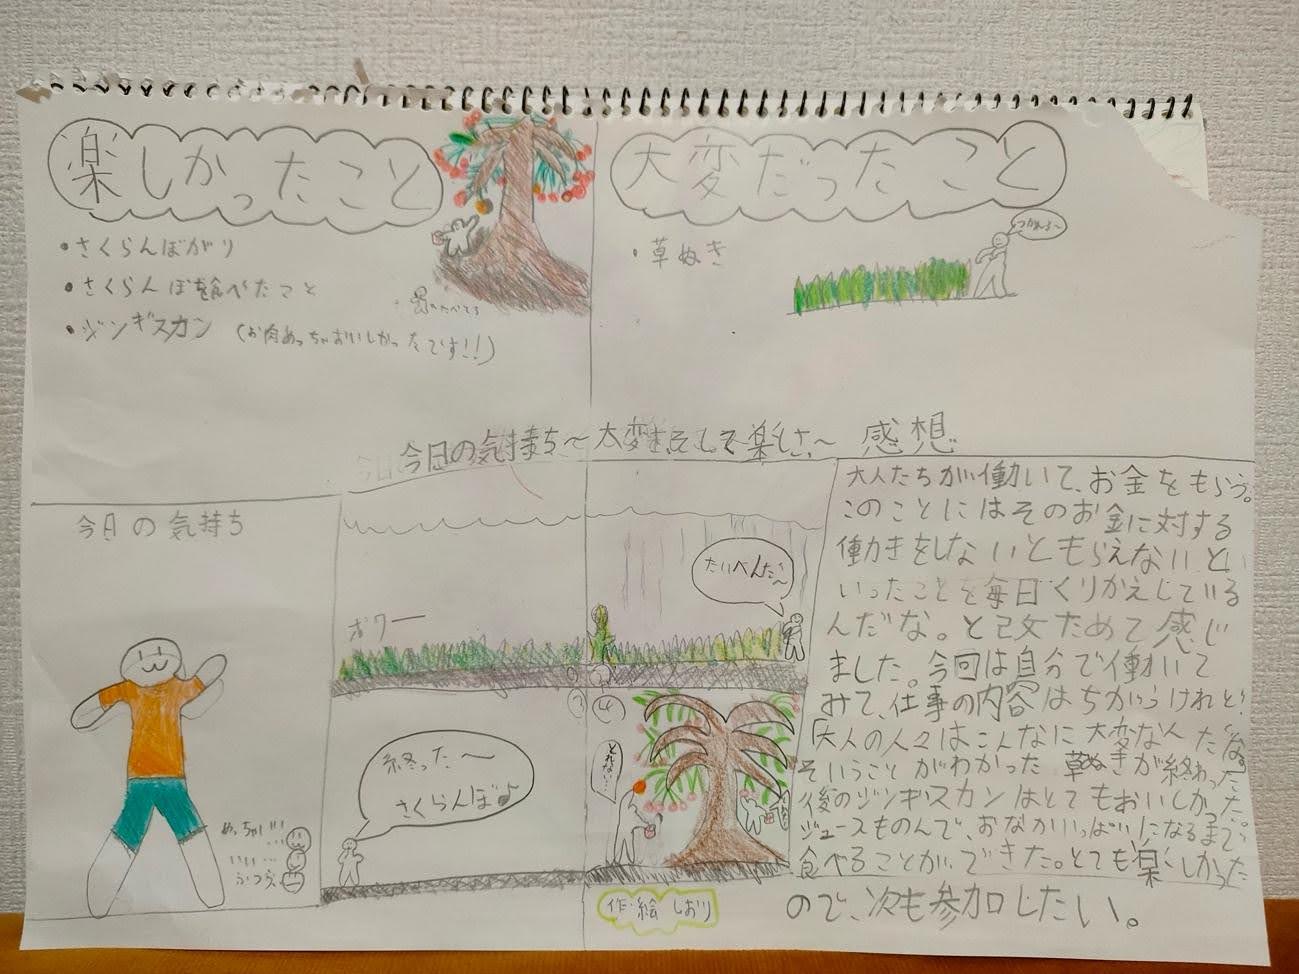 楽しかったこと
・さくらんぼがり
・さくらんぼを食べたこと
・ジンギスカン (お肉めっちゃおいしかったです!!)
大変だったこと
・草ぬき
つかれた〜
今日の気持ち〜大変さそして楽しさ〜
感想
今日の気持ち
めっちゃ!!!
いい…
ふつう
ボワー
①
②
たいへんだ〜
③
終った〜
さくらんぼ♪
④
とれない…
作・絵 しおり
大人たちが働いて、お金をもらう。
このことにはそのお金に対する
働きをしないともらえないと
いったことを毎日くりかえしている
んだな。と改ためて感じ
ました。今回は自分で働いて
みて、仕事の内容はちがうけれど!
「大人の人々はこんなに大変なんだな」
そいうことがわかった 草ぬきが終わった
後のジンギスカンはとてもおいしかった。
ジュースものんで、おなかいっぱいになるまで
食べることができた。とても楽しかった
ので、次も参加したい。